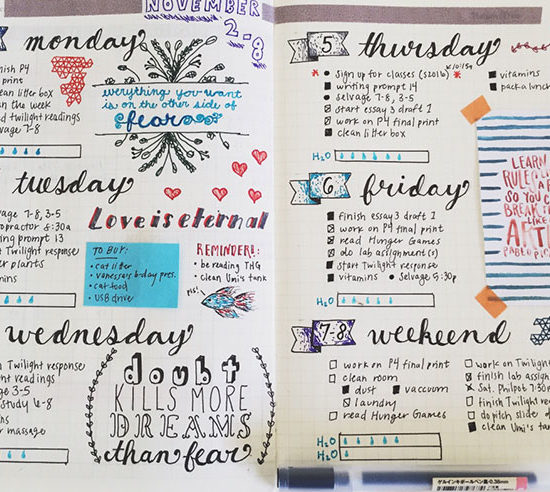 NOVEMBER
2-8
monday
nish P4
print
clean litter box
an the week
d Twilight readings
vage 7-8
everything you want
is on the other side of
fear
tuesday
vage 7-8, 3-5
opractor 6:30a
ng prompt 13
t Twilight response
er plants
mins
Love is eternal
TO BUY:
• cat litter
• vanessa's b-day pres.
• cat food
• USB drive
REMINDER!:
• be reading THG
• clean Umi's tank
pls!
wednesday
Twilight response
ht readings
age 3-5
study 6-8
r massage
doubt
KILLS MORE
DREAMS
than fear
5
thursday
10:15a
* • sign up for classes (S2016) *
writing prompt 14
selvage 7-8, 3-5
start essay 3 draft 1
work on P4 final print
clean litter box
vitamins
pack a lunch
H₂O
6
friday
finish essay 3 draft 1
work on P4 final print
read Hunger Games
do lab assignment(s)
start Twilight response
vitamins • Selvage 5:30p
H₂O
LEARN
RULE
SO YOU C
BREAK
LIKE
ARTI
PABLO PIC
7-8
weekend
work on P4 final print
clean room
dust
vaccuum
laundry
read Hunger Games
work on Twilight
finish lab assig
Sat. Philpot 1:30p
finish Twilight
do pitch slide
clean Umi's tank
H₂O
H₂O
ゲルインキボールペン 0.38mm